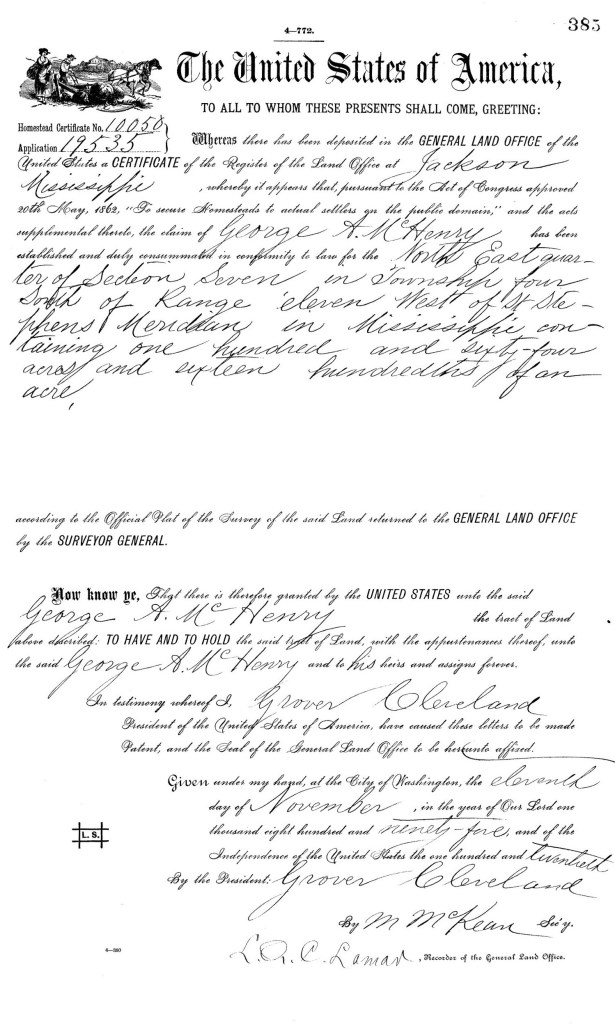 385
4—772.
The United States of America,
TO ALL TO WHOM THESE PRESENTS SHALL COME, GREETING:
Homestead Certificate No. 10050
Application 19535
Whereas there has been deposited in the GENERAL LAND OFFICE of the
United States a CERTIFICATE of the Register of the Land Office at Jackson
Mississippi , whereby it appears that, pursuant to the Act of Congress approved
20th May, 1862, "To secure Homesteads to actual settlers on the public domain," and the acts
supplemental thereto, the claim of George A. McHenry has been
established and duly consummated in conformity to law for the North East quar-
ter of Section Seven in Township four
South of Range eleven West of St Ste-
phens Meridian in Mississippi con-
taining one hundred and sixty-four
acres and sixteen hundredths of an
acre,
according to the Official Plat of the Survey of the said Land returned to the GENERAL LAND OFFICE
by the SURVEYOR GENERAL.
Now know ye, That there is therefore granted by the UNITED STATES unto the said
George A. McHenry the tract of Land
above described: TO HAVE AND TO HOLD the said tract of Land, with the appurtenances thereof, unto
the said George A. McHenry and to his heirs and assigns forever.
In testimony whereof I, Grover Cleveland
President of the United States of America, have caused these letters to be made
Patent, and the Seal of the General Land Office to be hereunto affixed.
Given under my hand, at the City of Washington, the eleventh
day of November , in the year of Our Lord one
thousand eight hundred and ninety-five, and of the
Independence of the United States the one hundred and twentieth
L.S.
By the President: Grover Cleveland
By M McKean Sec'y.
4—380
L. Q. C. Lamar , Recorder of the General Land Office.